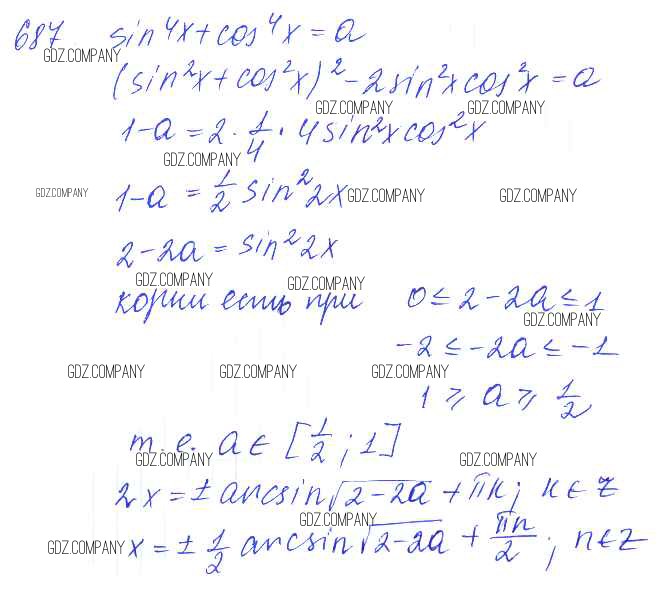 687 sin⁴x + cos⁴x = a
GDZ.COMPANY
(sin²x + cos²x)² - 2sin²x cos²x = a
GDZ.COMPANY GDZ.COMPANY
1-a = 2 · 1/4 · 4sin²x cos²x
GDZ.COMPANY
GDZ.COMPANY 1-a = 1/2 sin²2x GDZ.COMPANY GDZ.COMPANY
2-2a = sin²2x
GDZ.COMPANY GDZ.COMPANY
корни есть при 0 ≤ 2-2a ≤ 1
GDZ.COMPANY
-2 ≤ -2a ≤ -1
GDZ.COMPANY GDZ.COMPANY GDZ.COMPANY
1 ⩾ a ⩾ 1/2
т.е. a ∈ [1/2; 1]
GDZ.COMPANY GDZ.COMPANY
2x = ± arcsin√(2-2a) + πn; n ∈ Z
GDZ.COMPANY
GDZ.COMPANY x = ± 1/2 arcsin√(2-2a) + πn/2; n ∈ Z